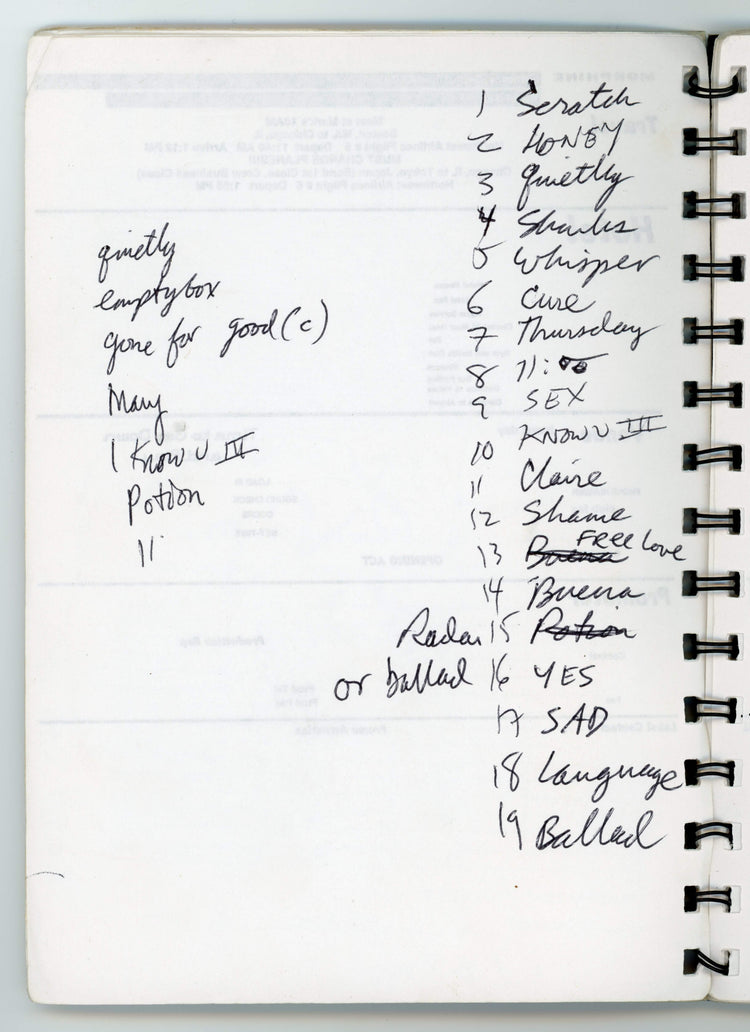 1 Scratch
2 HONEY
3 quietly
4 Sharks
5 Whisper
6 Cure
7 Thursday
8 11:
9 SEX
10 KNOW U III
11 Claire
12 Shame
13 Buena FREE Love
14 Buena
Radar 15 Potion
or ballad 16 YES
17 SAD
18 Language
19 Ballad
quietly
emptybox
gone for good (c)
Mary
I Know U IV
Potion
11